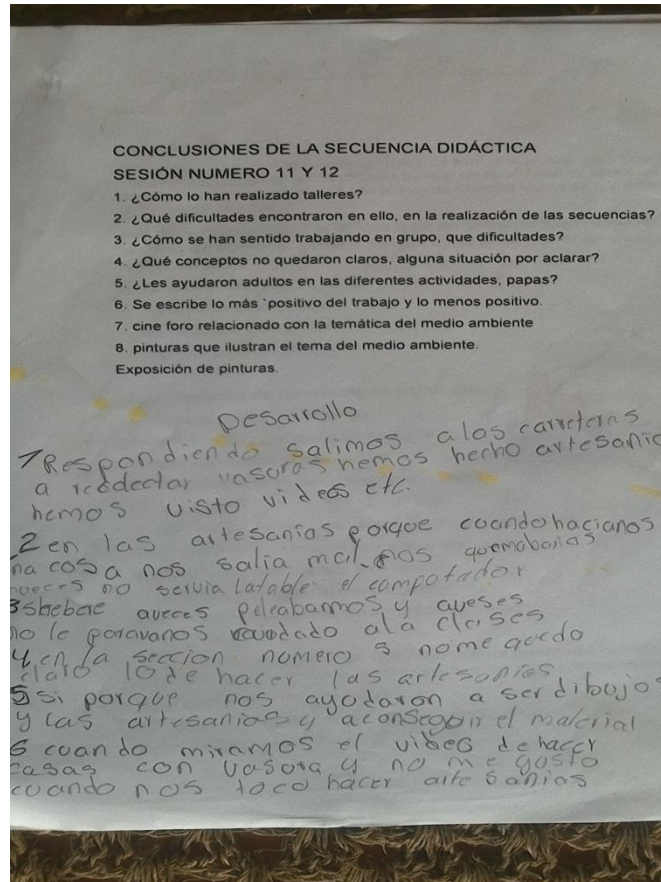 CONCLUSIONES DE LA SECUENCIA DIDÁCTICA
SESIÓN NUMERO 11 Y 12
1. ¿Cómo lo han realizado talleres?
2. ¿Qué dificultades encontraron en ello, en la realización de las secuencias?
3. ¿Cómo se han sentido trabajando en grupo, que dificultades?
4. ¿Qué conceptos no quedaron claros, alguna situación por aclarar?
5. ¿Les ayudaron adultos en las diferentes actividades, papas?
6. Se escribe lo más `positivo del trabajo y lo menos positivo.
7. cine foro relacionado con la temática del medio ambiente
8. pinturas que ilustran el tema del medio ambiente.
Exposición de pinturas.
Desarrollo
1 Respondiendo salimos a las carreteras
a vasuras hemos hecho artesanic
hemos visto videos etc.
2 en las artesanias porque cuando hacianos
na cosa nos salia mal nos quemabanas
no servia la table el compotador
3 aveces peleabamos y aveses
no le paravanos ala clases
4 en la seccion numero 3 nome quedo
claro lo de hacer las artesanias
5 si porque nos ayudaron a ser dibujo
y las artesanias y a conseguir el material
6 cuando miramos el video de hacer
casas con vasura y no me gusto
cuando nos toco hacer artesanias